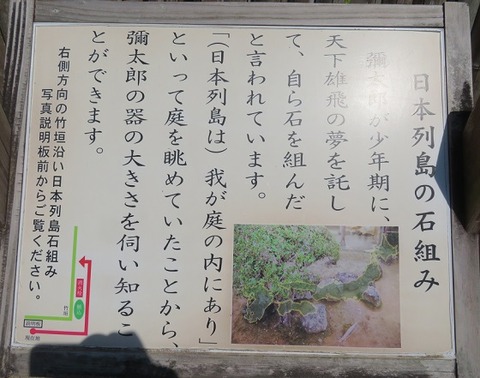 日本列島の石組み
彌太郎が少年期に、
天下雄飛の夢を託し
て、自ら石を組んだ
と言われています。
「(日本列島は)我が庭の内にあり」
といって庭を眺めていたことから、
彌太郎の器の大きさを伺い知るこ
とができます。
右側方向の竹垣沿い日本列島石組み
写真説明板前からご覧ください。
竹垣
説明板
現在地